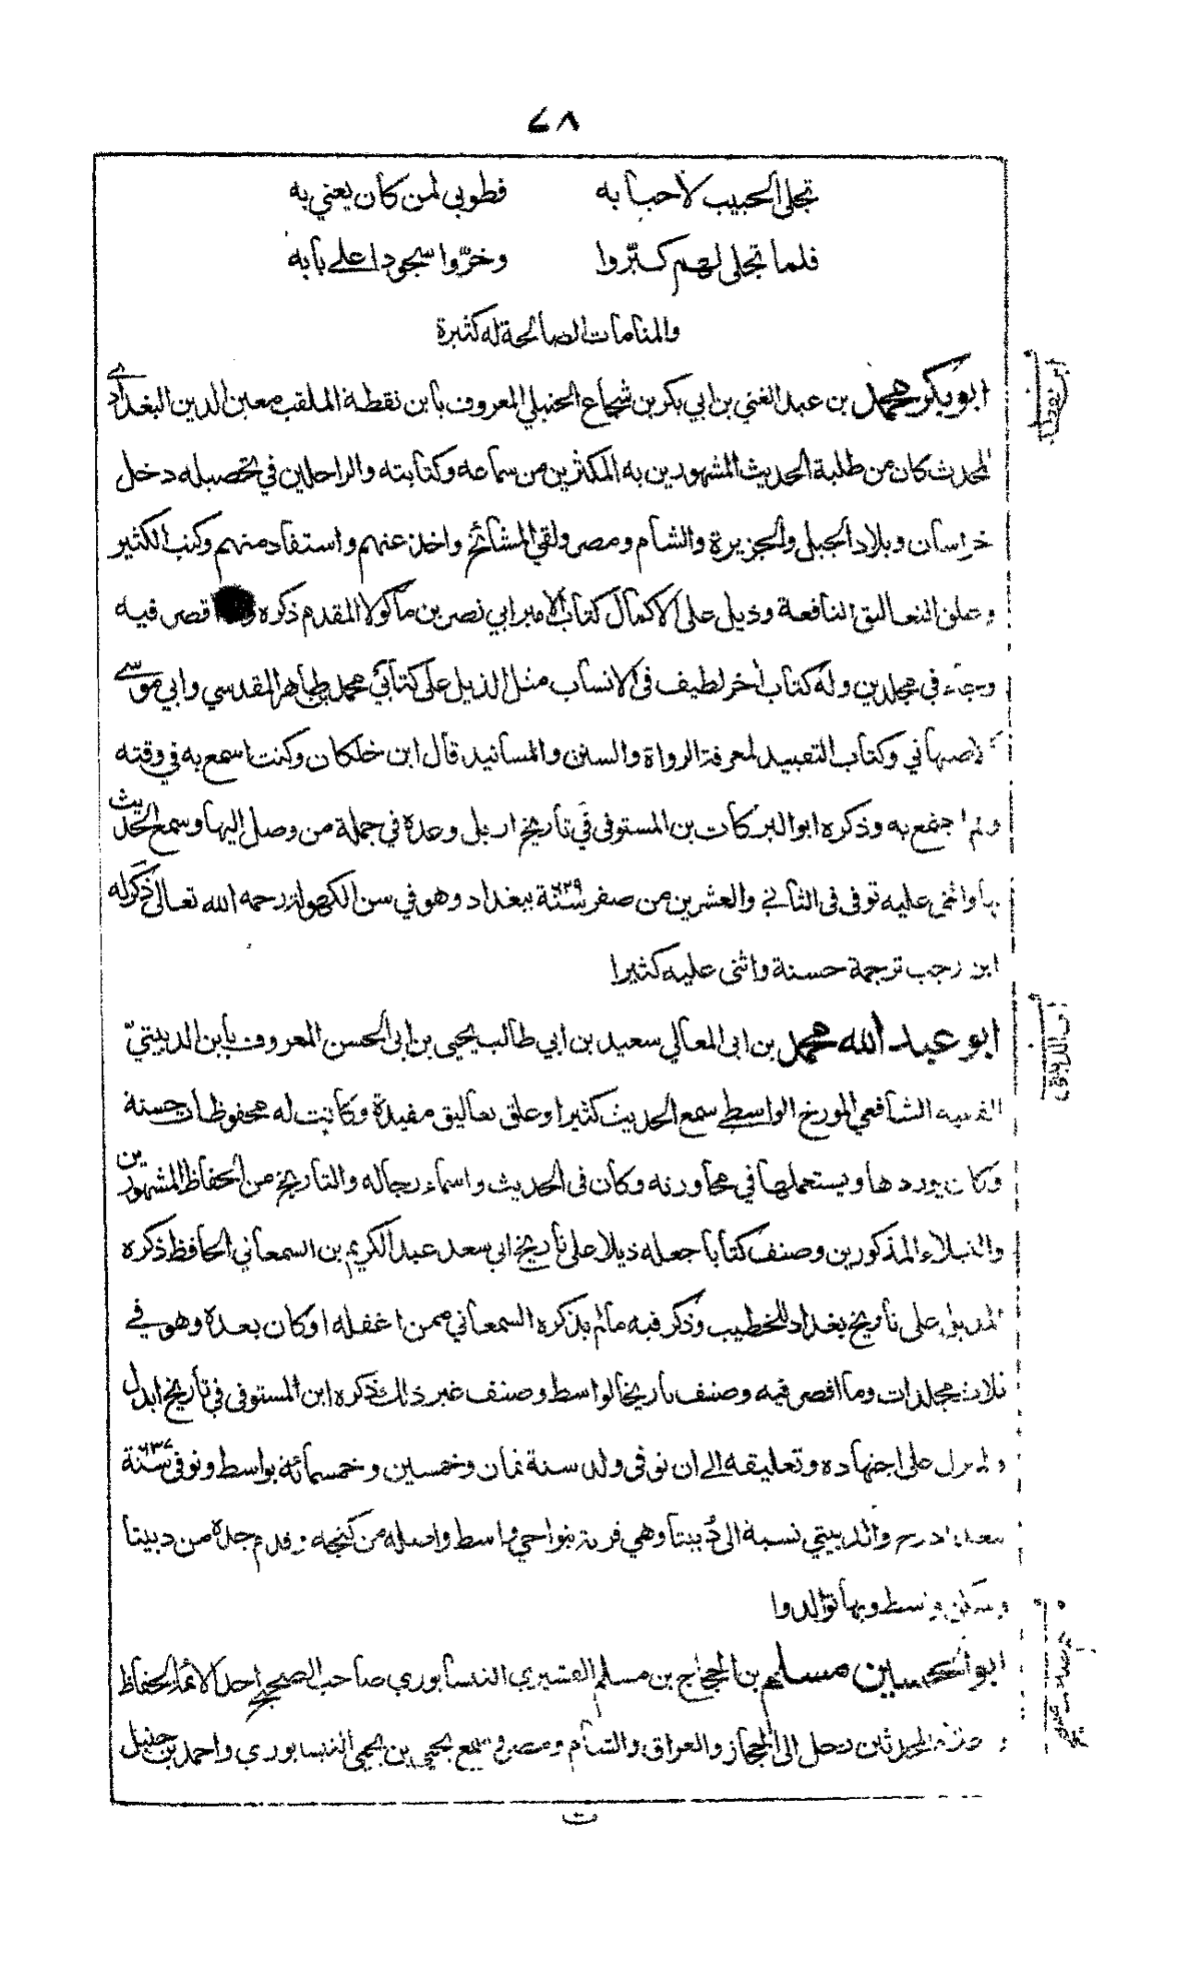 ٤٨
تجلى الحبيب لأحبابه فطوبى لمن كان يعني به
فلما تجلى لهم كبّروا وخرّوا سجودا على بابه
والمنامات الصالحة له كثيرة
ابو بكر محمد بن عبد الغني بن ابي بكر بن شجاع الحنبلي المعروف بابن نقطة الملقب معين الدين البغدادي
المحدث كان من طلبة الحديث المشهورين به المكثرين من سماعه وكتابته والراحلين في تحصيله دخل
خراسان وبلاد الجبل والجزيرة والشام ومصر ولقي المشائخ واخذ عنهم واستفاد منهم وكتب الكثير
وعلق التعاليق النافعة وذيل على الاكمال كتاب الامير ابي نصر بن ماكولا المقدم ذكره اقصر فيه
وجاء في مجلدين وله كتاب أخر لطيف في الانساب مثل الذيل على كتابي محمد بن طاهر المقدسي وابي موسى
الاصبهاني وكتاب التقييد لمعرفة الرواة والسنن والمسانيد قال ابن خلكان وكنت اسمع به في وقته
ولم اجتمع به وذكره ابو البركات بن المستوفي في تاريخ اربل وعده في جملة من وصل اليها وسمع الحديث
بها واثنى عليه توفى فى الثاني والعشرين من صفر سنة ٦٢٩ ببغداد وهو في سن الكهولة رحمه الله تعالى ذكر له
ابن رجب ترجمة حسنة واثنى عليه كثيرا
ابو عبد الله محمد بن ابى المعالي سعيد بن ابي طالب يحيى بن ابى الحسن المعروف بابن الدبيثيّ
الفقيه الشافعي المورخ الواسطي سمع الحديث كثيرا وعلق تعاليق مفيدة وكانت له محفوظات حسنة
وكان يوردها ويستعملها في محاورته وكان فى الحديث واسماء رجاله والتاريخ من الحفاظ المشهورين
والنبلاء المذكورين وصنف كتابا جعله ذيلا على تاريخ ابي سعد عبد الكريم بن السمعاني الحافظ ذكره
المذيل على تاريخ بغداد للخطيب وذكر فيه مالم يذكره السمعاني ممن اغفله او كان بعده وهو في
ثلاث مجلدات وما اقصر فيه وصنف تاريخا لواسط وصنف غير ذلك ذكره ابن المستوفى في تاريخ اربل
ولم يزل على اجتهاده وتعليقه الى ان توفى ولد سنة ثمان وخمسين وخمسمائة بواسط وتوفى سنة ٦٣٧
ببغداد رح والدبيثي نسبة الى دُبيثا وهي قرية بنواحي واسط واصله من كنجه وقدم جده من دبيثا
وسكن واسط وبها توالدوا
ابو الحسين مسلم بن الحجاج بن مسلم القشيري النيسابوري صاحب الصحيح احد الائمة الحفاظ
و المحدثين رحل الى الحجاز والعراق والشام ومصر وسمع يحيى بن يحيى النيسابوري واحمد بن حنبل
ت
ابن نقطة
ابن الدبيثي